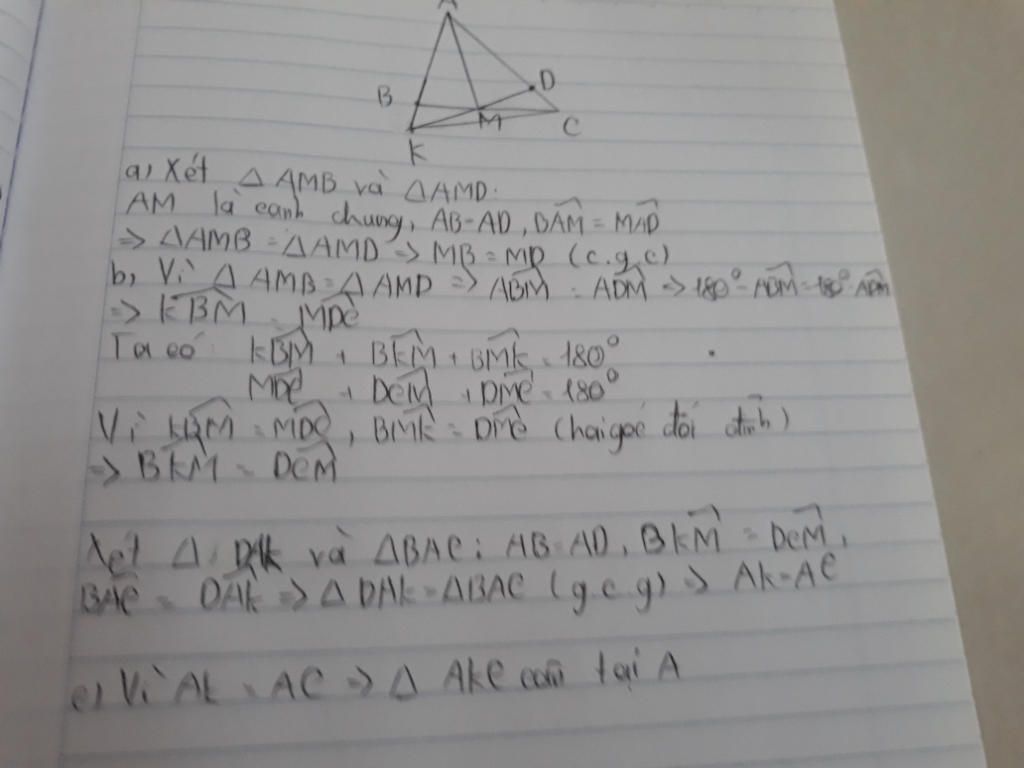 A
B
D
M
C
K
a) Xét △ AMB và △AMD:
AM là cạnh chung, AB=AD, BAM^ = MAD^
=> △AMB = △AMD => MB = MD (c.g.c)
b, Vì △ AMB = △ AMD => ABM^ = ADM^ => 180° - ABM^ = 180° - ADM^
=> KBM^ = MDC^
Ta có: KBM^ + BKM^ + BMK^ = 180°
MDC^ + DCM^ + DMC^ = 180°
Vì KBM^ = MDC^, BMK^ = DMC^ (hai góc đối đỉnh)
=> BKM^ = DCM^
Xét △ DAK và △BAC: AB=AD, BKM^ = DCM^,
BAC^ = DAK^ => △ DAK = △BAC (g.c.g) => AK=AC
c) Vì AK = AC => △ AKC cân tại A